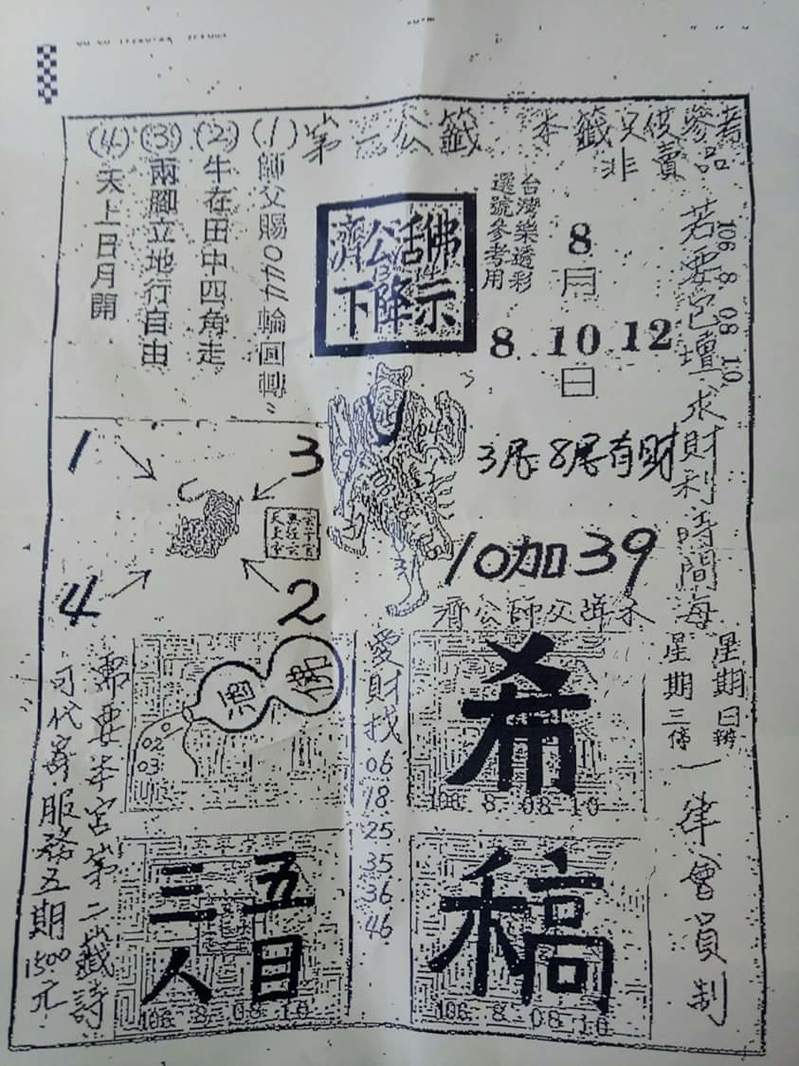 本籤只供參考
非賣品
第一公籤
(1)師父賜0777輪回轉
(2)牛在田中四角走
(3)兩腳立地行自由
(4)天上日月開
濟公活佛
下降示
台灣樂透彩
選號參考用
8
月
8 10 12
日
106 8 08 10
若要宮壇求財利時間每
星期日辦
星期三停
律會員制
3尾8尾有財
10加39
濟公師父
1
3
4
2
04
酒
佛
02
03
愛財找
06
18
25
35
36
46
希
106 8 08 10
三五
人目
106 8 08 10
稿
106 8 08 10
需要本宮第二籤詩
可代寄服務五期1500元